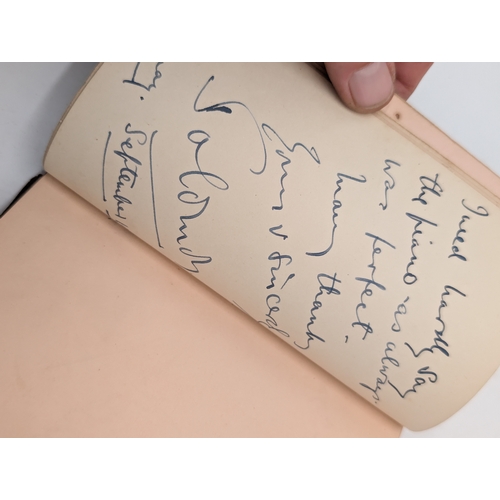 I need hardly say
the piano as always
was perfect -
Many thanks
Yours v sincerely
Solomon
September